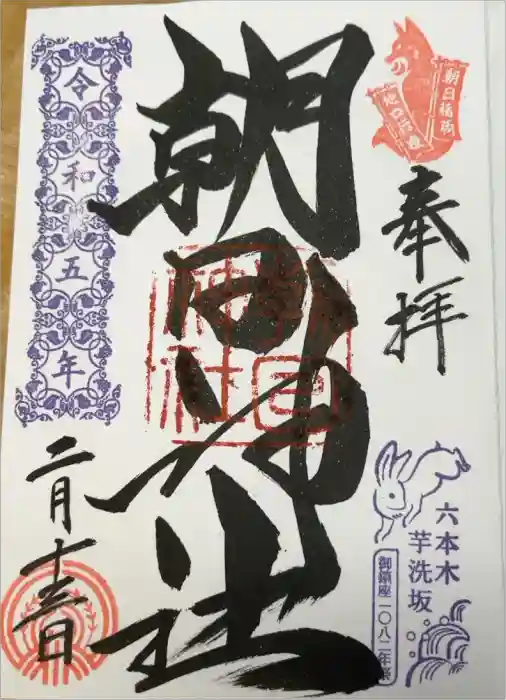 朝日稲荷
奉拝
六本木
芋洗坂
御鎮座一〇八二年祭
朝日神社
朝日
神社
令和五年
二月